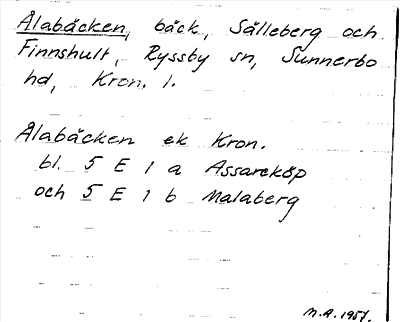 Ålabäcken, bäck, Sälleberg och
Finnshult, Ryssby sn, Sunnerbo
hd, Kron. l.
Ålabäcken ek Kron.
bl. 5 E 1 a Assareköp
och 5 E 1 b Malaberg
M.A. 1957.